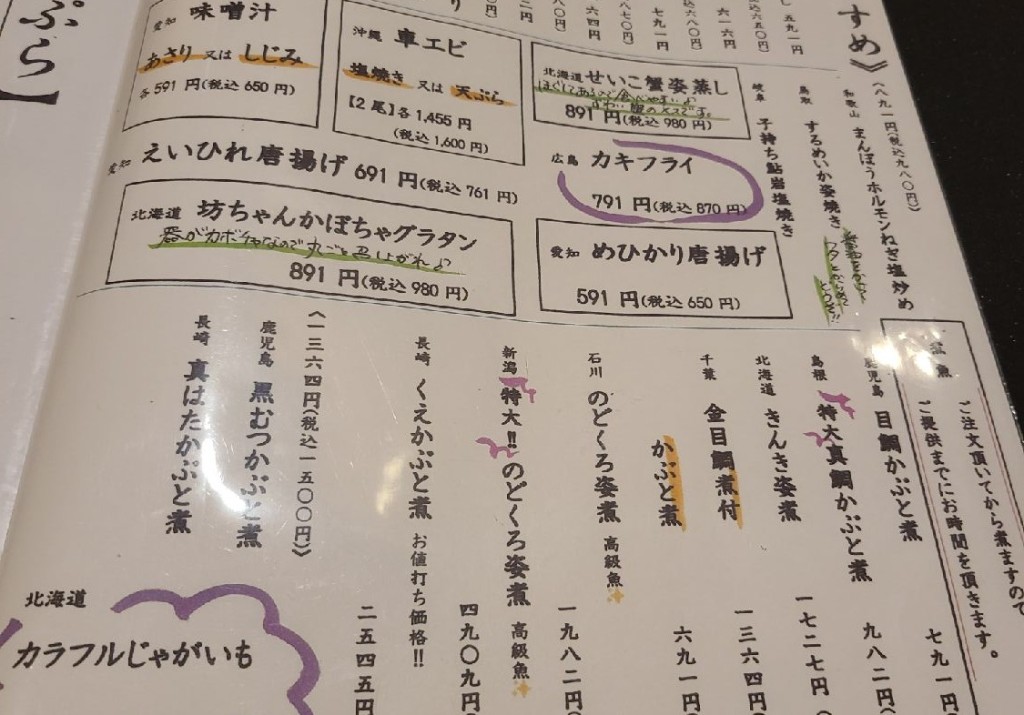 ぷら】
愛知 味噌汁
あさり 又は しじみ
各591円(税込650円)
沖縄 車エビ
塩焼き 又は 天ぷら
【2尾】各1,455円
(税込1,600円)
北海道 せいこ蟹姿蒸し
891円(税込980円)
愛知 えいひれ唐揚げ 691円(税込761円)
広島 カキフライ
791円(税込870円)
北海道 坊ちゃんかぼちゃグラタン
器がカボチャなので丸ごと召し上がれ♪
891円(税込980円)
愛知 めひかり唐揚げ
591円(税込650円)
すめ》
〈八九一円(税込九八〇円)〉
和歌山 まんぼうホルモンねぎ塩炒め
鳥取 するめいか姿焼き
岐阜 子持ち鮎岩塩焼き
五九一円
六一六円
七九一円
ご注文頂いてから煮ますので
ご提供までにお時間を頂きます。
鹿児島 目鯛かぶと煮 七九一円
島根 特大真鯛かぶと煮 九八二円
北海道 きんき姿煮 一七二七円
千葉 金目鯛煮付 一三六四円
かぶと煮 六九一円
石川 のどくろ姿煮 高級魚 一九八二円
新潟 特大!!のどくろ姿煮 高級魚 四九〇九円
長崎 くえかぶと煮 お値打ち価格!! 二五四五円
〈一三六四円(税込一五〇〇円)〉
鹿児島 黒むつかぶと煮
長崎 真はたかぶと煮
北海道
カラフルじゃがいも